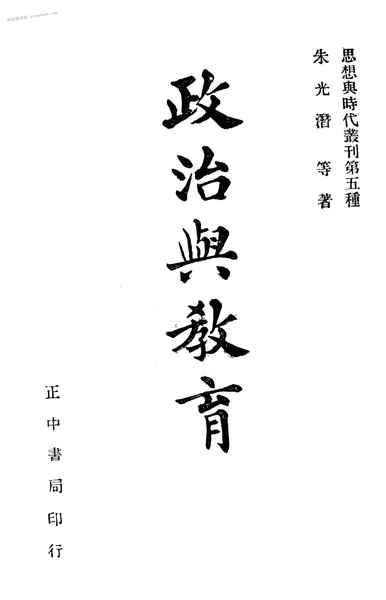 思想與時代叢刊第五種
朱光潛等著
政治與教育
正中書局印行